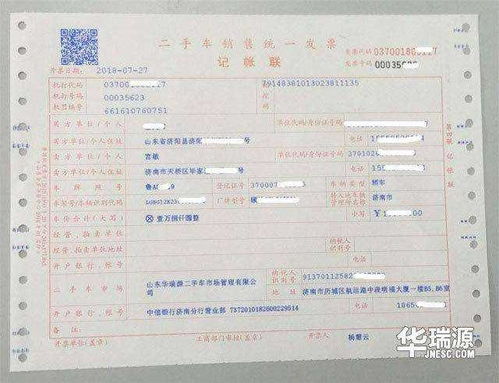 二手车销售统一发票
记帐联
发票代码 037001800117
发票号码 00035
开票日期: 2018-07-27
机打代码 037001
机打号码 00035623
机器编号 661610760751
79148381013023811135
买方单位/个人
单位代码/身份证号码
买方单位/个人住址 山东省济阳县济阳 号
电话
卖方单位/个人 富敏
单位代码/身份证号码 370102
卖方单位/个人住址 济南市天桥区毕家
电话
车牌照号 鲁 9
登记证号 370007
车辆类型 轿车
车架号/车辆识别代码
厂牌型号
转入地车辆管理所名称 济南市
车价合计(大写) ⊗壹万捌仟圆整
小写 ¥ 00
经营、拍卖单位
经营、拍卖单位地址
纳税人识别号
开户银行、帐号
电话
二手车市场 山东华瑞源二手车市场管理有限公司
纳税人识别号 91370112582
地址 济南市历城区航运路中段明禧大厦一楼B5,B6室
开户银行、帐号 中信银行济南分行营业部 7372010182600229514
电话
备注:
开票单位(盖章)
工商部门审核(盖章)
开票人 杨慧云
第四联 记帐联
华瑞源
JNESC.COM